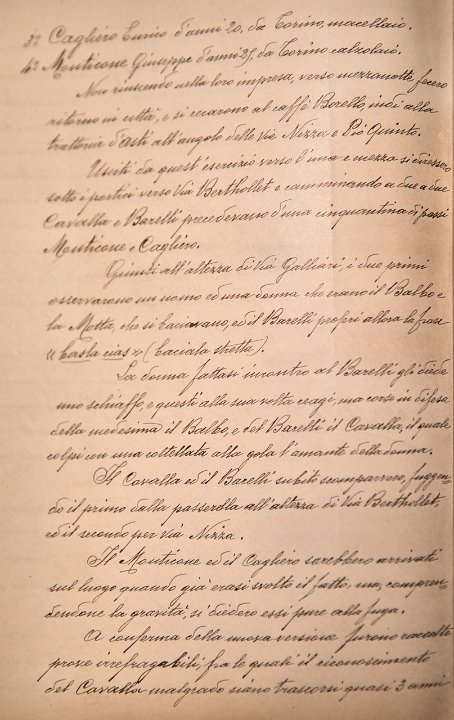 3° Cagliero Enrico d'anni 20, da Torino, macellaio.
4° Monticone Giuseppe d'anni 25, da Torino calzolaio.
Non riuscendo nella loro impresa, verso mezzanotte fecero
ritorno in città, e si recarono al caffè Borello, indi alla
trattoria d'Asti all'angolo delle vie Nizza e Pio Quinto.
Usciti da quest'esercizio verso l'una e mezzo si diressero
sotto i portici verso Via Berthollet e camminando a due a due
Cavalla e Barelli precedevano d'una cinquantina di passi
Monticone e Cagliero.
Giunti all'altezza di Via Galliari, i due primi
osservarono un uomo ed una donna che erano il Balbo e
la Motta, che si baciavano, ed il Barelli proferì allora la frase
«basla cias» (baciala stretta).
La donna fattasi incontro al Barelli gli diede
uno schiaffo, e questi alla sua volta reagì, ma corse in difesa
della medesima il Balbo, e del Barelli il Cavalla, il quale
colpì con una coltellata alla gola l'amante della donna.
Il Cavalla ed il Barelli subito scomparvero, fuggen-
do il primo dalla passerella all'altezza di Via Berthollet,
ed il secondo per via Nizza.
Il Monticone ed il Cagliero sarebbero arrivati
sul luogo quando già erasi svolto il fatto, ma, compren-
dendone la gravità, si diedero essi pure alla fuga.
A conferma della nuova versione furono raccolte
prove irrefragabili, fra le quali il riconoscimento
del Cavalla malgrado siano trascorsi quasi 3 anni